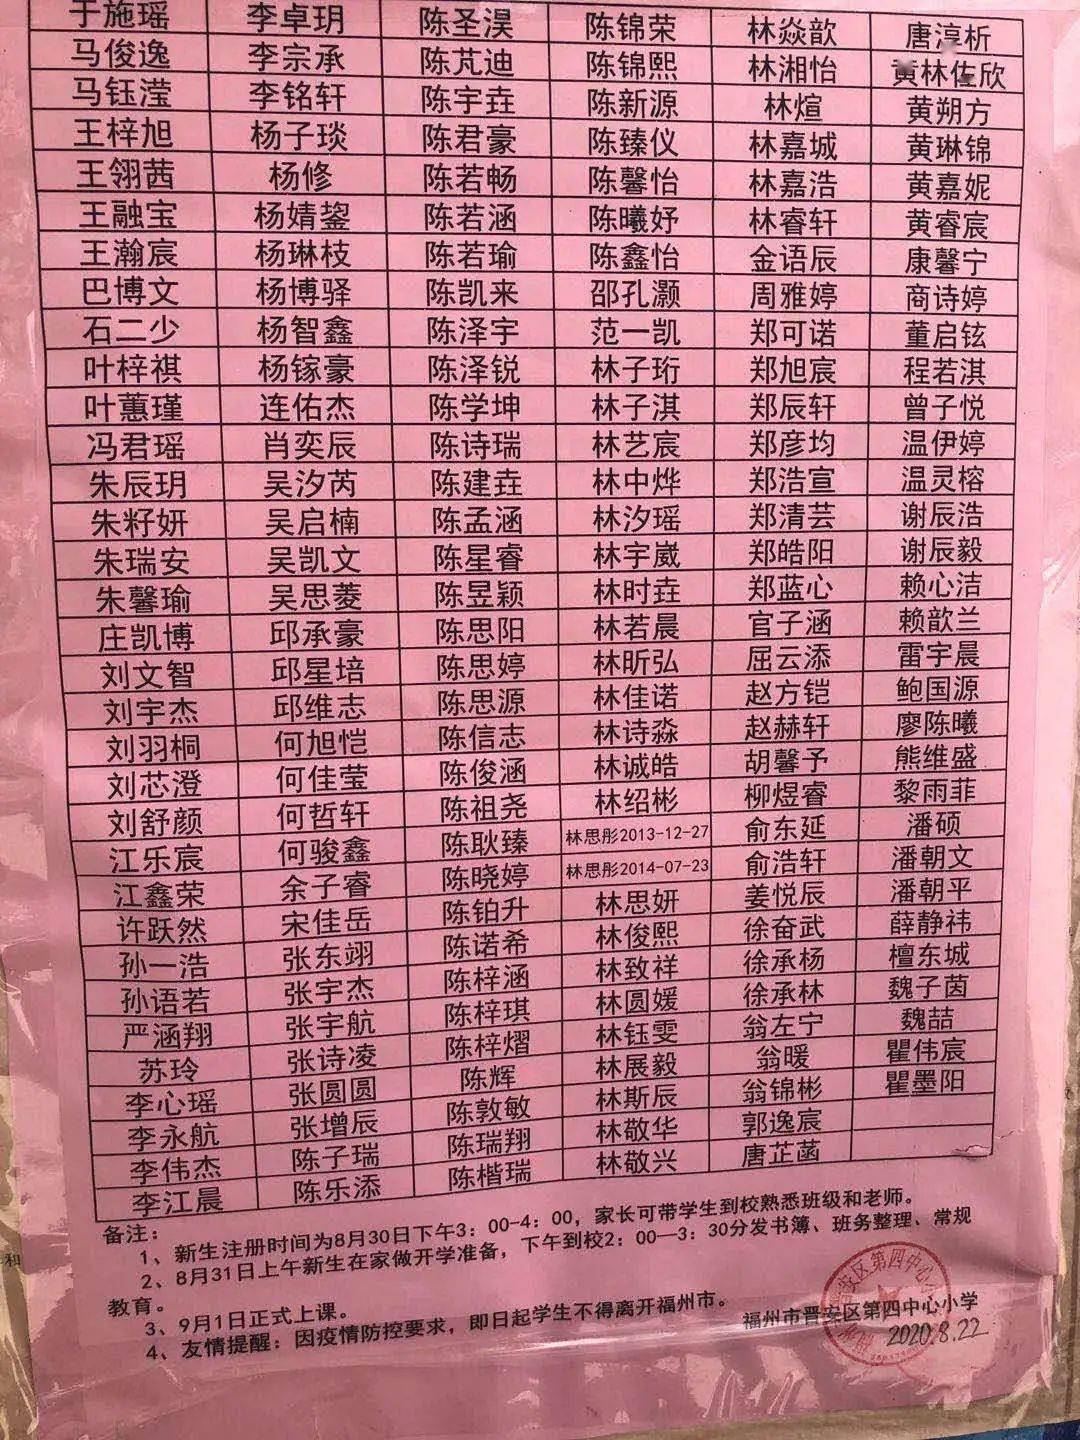 于施瑶 李卓玥 陈圣淏 陈锦荣 林焱歆 唐淳析
马俊逸 李宗承 陈芃迪 陈锦熙 林湘怡 黄林佐欣
马钰滢 李铭轩 陈宇垚 陈新源 林煊 黄朔方
王梓旭 杨子琰 陈君豪 陈臻仪 林嘉城 黄琳锦
王翎茜 杨修 陈若畅 陈馨怡 林嘉浩 黄嘉妮
王融宝 杨婧鋆 陈若涵 陈曦妤 林睿轩 黄睿宸
王瀚宸 杨琳枝 陈若瑜 陈鑫怡 金语辰 康馨宁
巴博文 杨博驿 陈凯来 邵孔灏 周雅婷 商诗婷
石二少 杨智鑫 陈泽宇 范一凯 郑可诺 董启铉
叶梓祺 杨镓豪 陈泽锐 林子珩 郑旭宸 程若淇
叶蕙瑾 连佑杰 陈学坤 林子淇 郑辰轩 曾子悦
冯君瑶 肖奕辰 陈诗瑞 林艺宸 郑彦均 温伊婷
朱辰玥 吴汐芮 陈建垚 林中烨 郑浩宣 温灵榕
朱籽妍 吴启楠 陈孟涵 林汐瑶 郑清芸 谢辰浩
朱瑞安 吴凯文 陈星睿 林宇崴 郑皓阳 谢辰毅
朱馨瑜 吴思菱 陈昱颖 林时垚 郑蓝心 赖心洁
庄凯博 邱承豪 陈思阳 林若晨 官子涵 赖歆兰
刘文智 邱星培 陈思婷 林昕弘 屈云添 雷宇晨
刘宇杰 邱维志 陈思源 林佳诺 赵方铠 鲍国源
刘羽桐 何旭恺 陈信志 林诗淼 赵赫轩 廖陈曦
刘芯澄 何佳莹 陈俊涵 林诚皓 胡馨予 熊维盛
刘舒颜 何哲轩 陈祖尧 林绍彬 柳煜睿 黎雨菲
江乐宸 何骏鑫 陈耿臻 林思彤2013-12-27 俞东延 潘硕
江鑫荣 余子睿 陈晓婷 林思彤2014-07-23 俞浩轩 潘朝文
许跃然 宋佳岳 陈铂升 林思妍 姜悦辰 潘朝平
孙一浩 张东翊 陈诺希 林俊熙 徐奋武 薛静祎
孙语若 张宇杰 陈梓涵 林致祥 徐承杨 檀东城
严涵翔 张宇航 陈梓琪 林圆媛 徐承林 魏子茵
苏玲 张诗凌 陈梓熠 林钰雯 翁左宁 魏喆
李心瑶 张圆圆 陈辉 林展毅 翁暖 瞿伟宸
李永航 张增辰 陈敦敏 林斯辰 翁锦彬 瞿墨阳
李伟杰 陈子瑞 陈瑞翔 林敬华 郭逸宸
李江晨 陈乐添 陈楷瑞 林敬兴 唐芷菡
备注：
1、新生注册时间为8月30日下午3：00-4：00，家长可带学生到校熟悉班级和老师。
2、8月31日上午新生在家做开学准备，下午到校2：00—3：30分发书簿、班务整理、常规
教育。
3、9月1日正式上课。
4、友情提醒：因疫情防控要求，即日起学生不得离开福州市。
福州市晋安区第四中心小学
2020.8.22